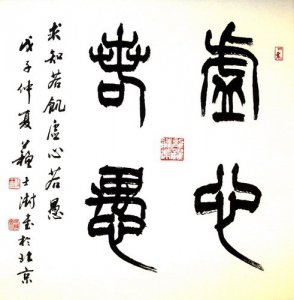 虛心
若愚
求知若飢虛心若愚
戊子仲夏蘇士澍書於北京